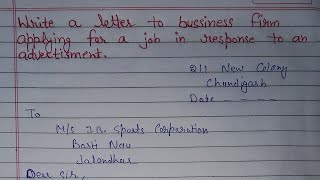 Write a letter to bussiness firm
applying for a job in response to an
advertisment.
211 New Colony
Chandigarh
Date - - - - -
To
M/s J.B. Sports Corporation
Basti Nau
Jalandhar
Dear Sir,